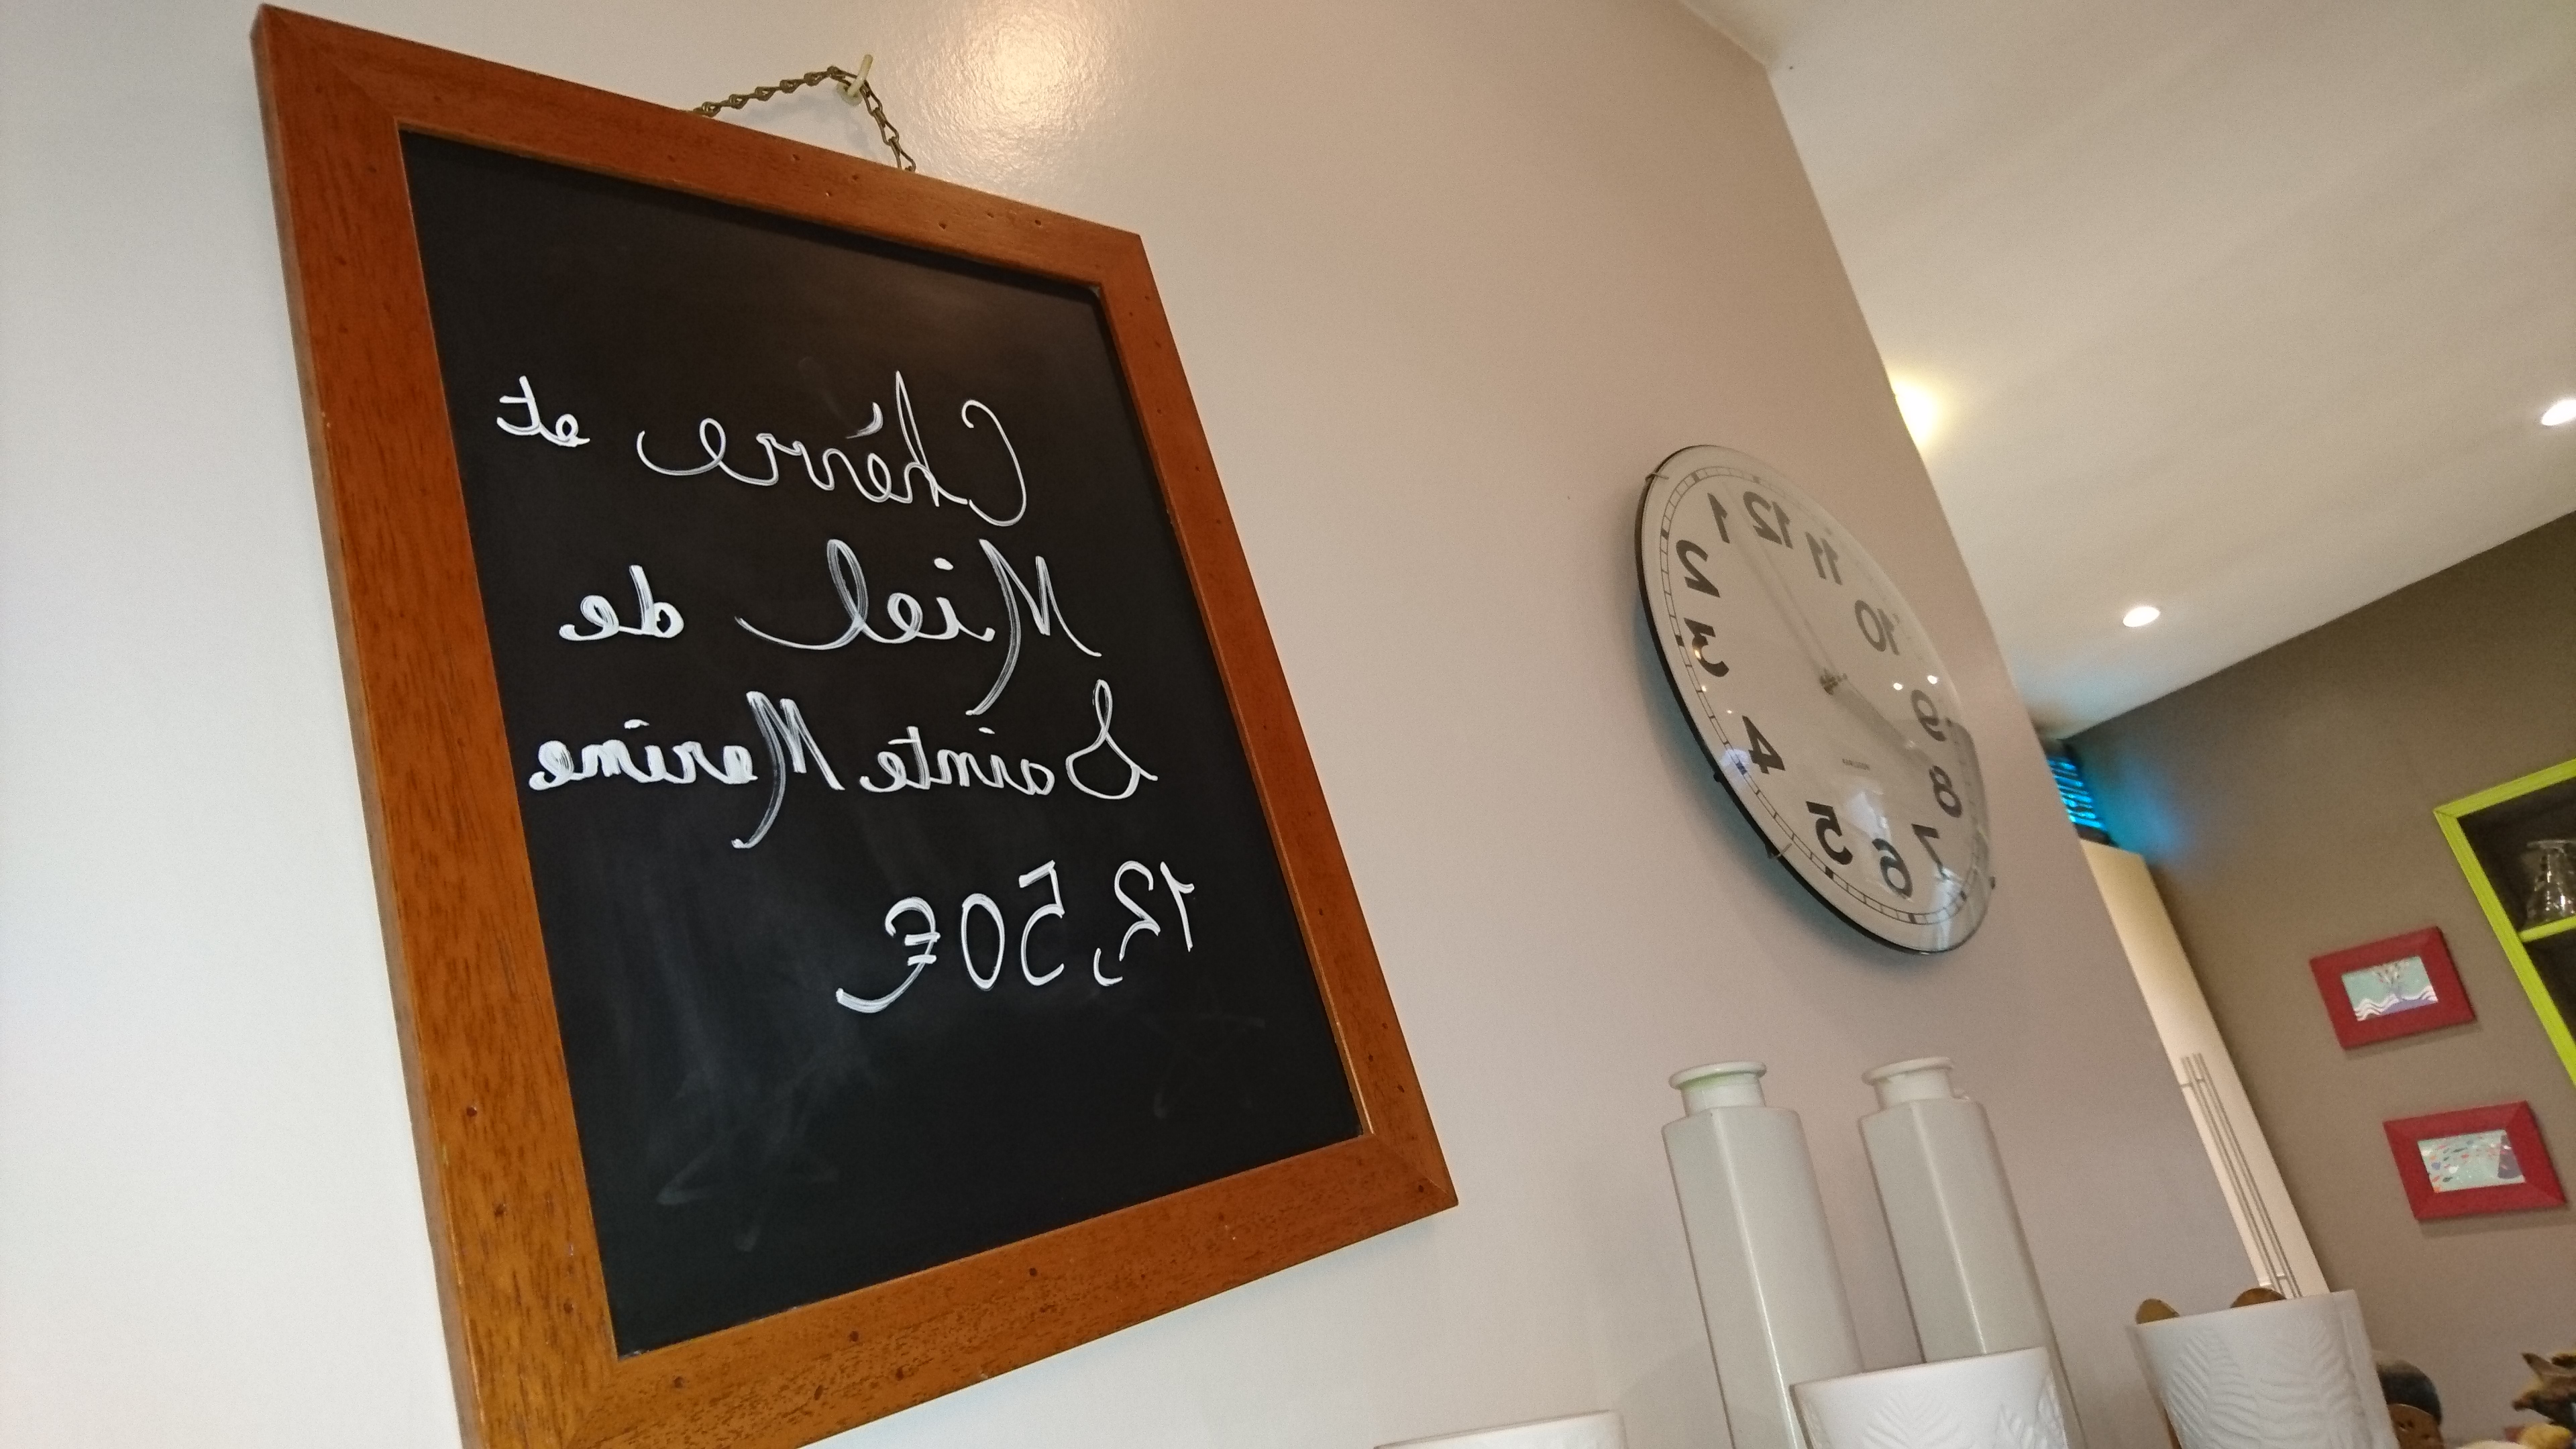 Chévre et
Miel de
Sainte Marine
12,50€
12
1
2
3
4
5
6
7
8
9
10
11